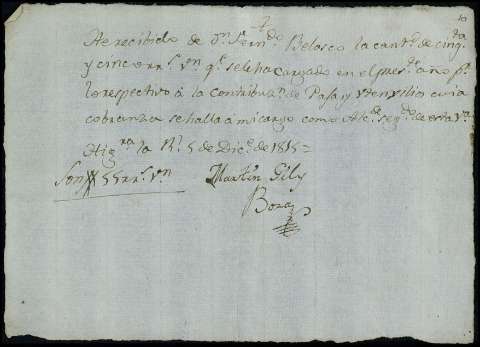 10
He recibido de Dn. Fern.do Belasco la cant.d de cinq.ta
y cinco rr.s vn. q.e sele ha cargado en el pres.te año p.r
lo respectivo á la contribuz.n de Paja y Vtensilio cuia
cobranza se halla á mi cargo como Alc.de seg.do de esta v.a
Hig.ra la R.l 5 de Dic.e de 1815=
Son 55 rr.s vn
Martin Gil y
Boza